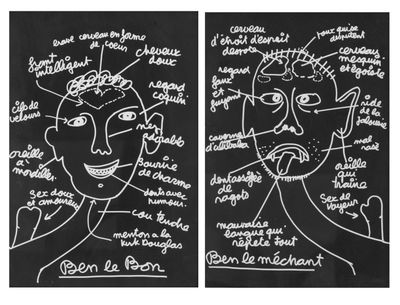 cerveau en forme
de coeur
cheveux
doux
front
intelligent
regard
coquin
cils de
velours
nez
agréable
oreille
à mordiller.
sourire
de charme
dents avec
humour.
sex doux
et amoureux
cou tendre
menton à la
Kirk Douglas
Ben le Bon
cerveau
d'étroit d'esprit
poux qui se
disputent
cerveaux
mesquin
et égoïste
regard
faux
et
fuyant
ride de
la
jalousie
caverne
d'alibaba
mal
rasé
oreille
qui
traine
dent
de
ragots
sex de
voyeur
mauvaise
langue qui
répète tout
Ben le méchant